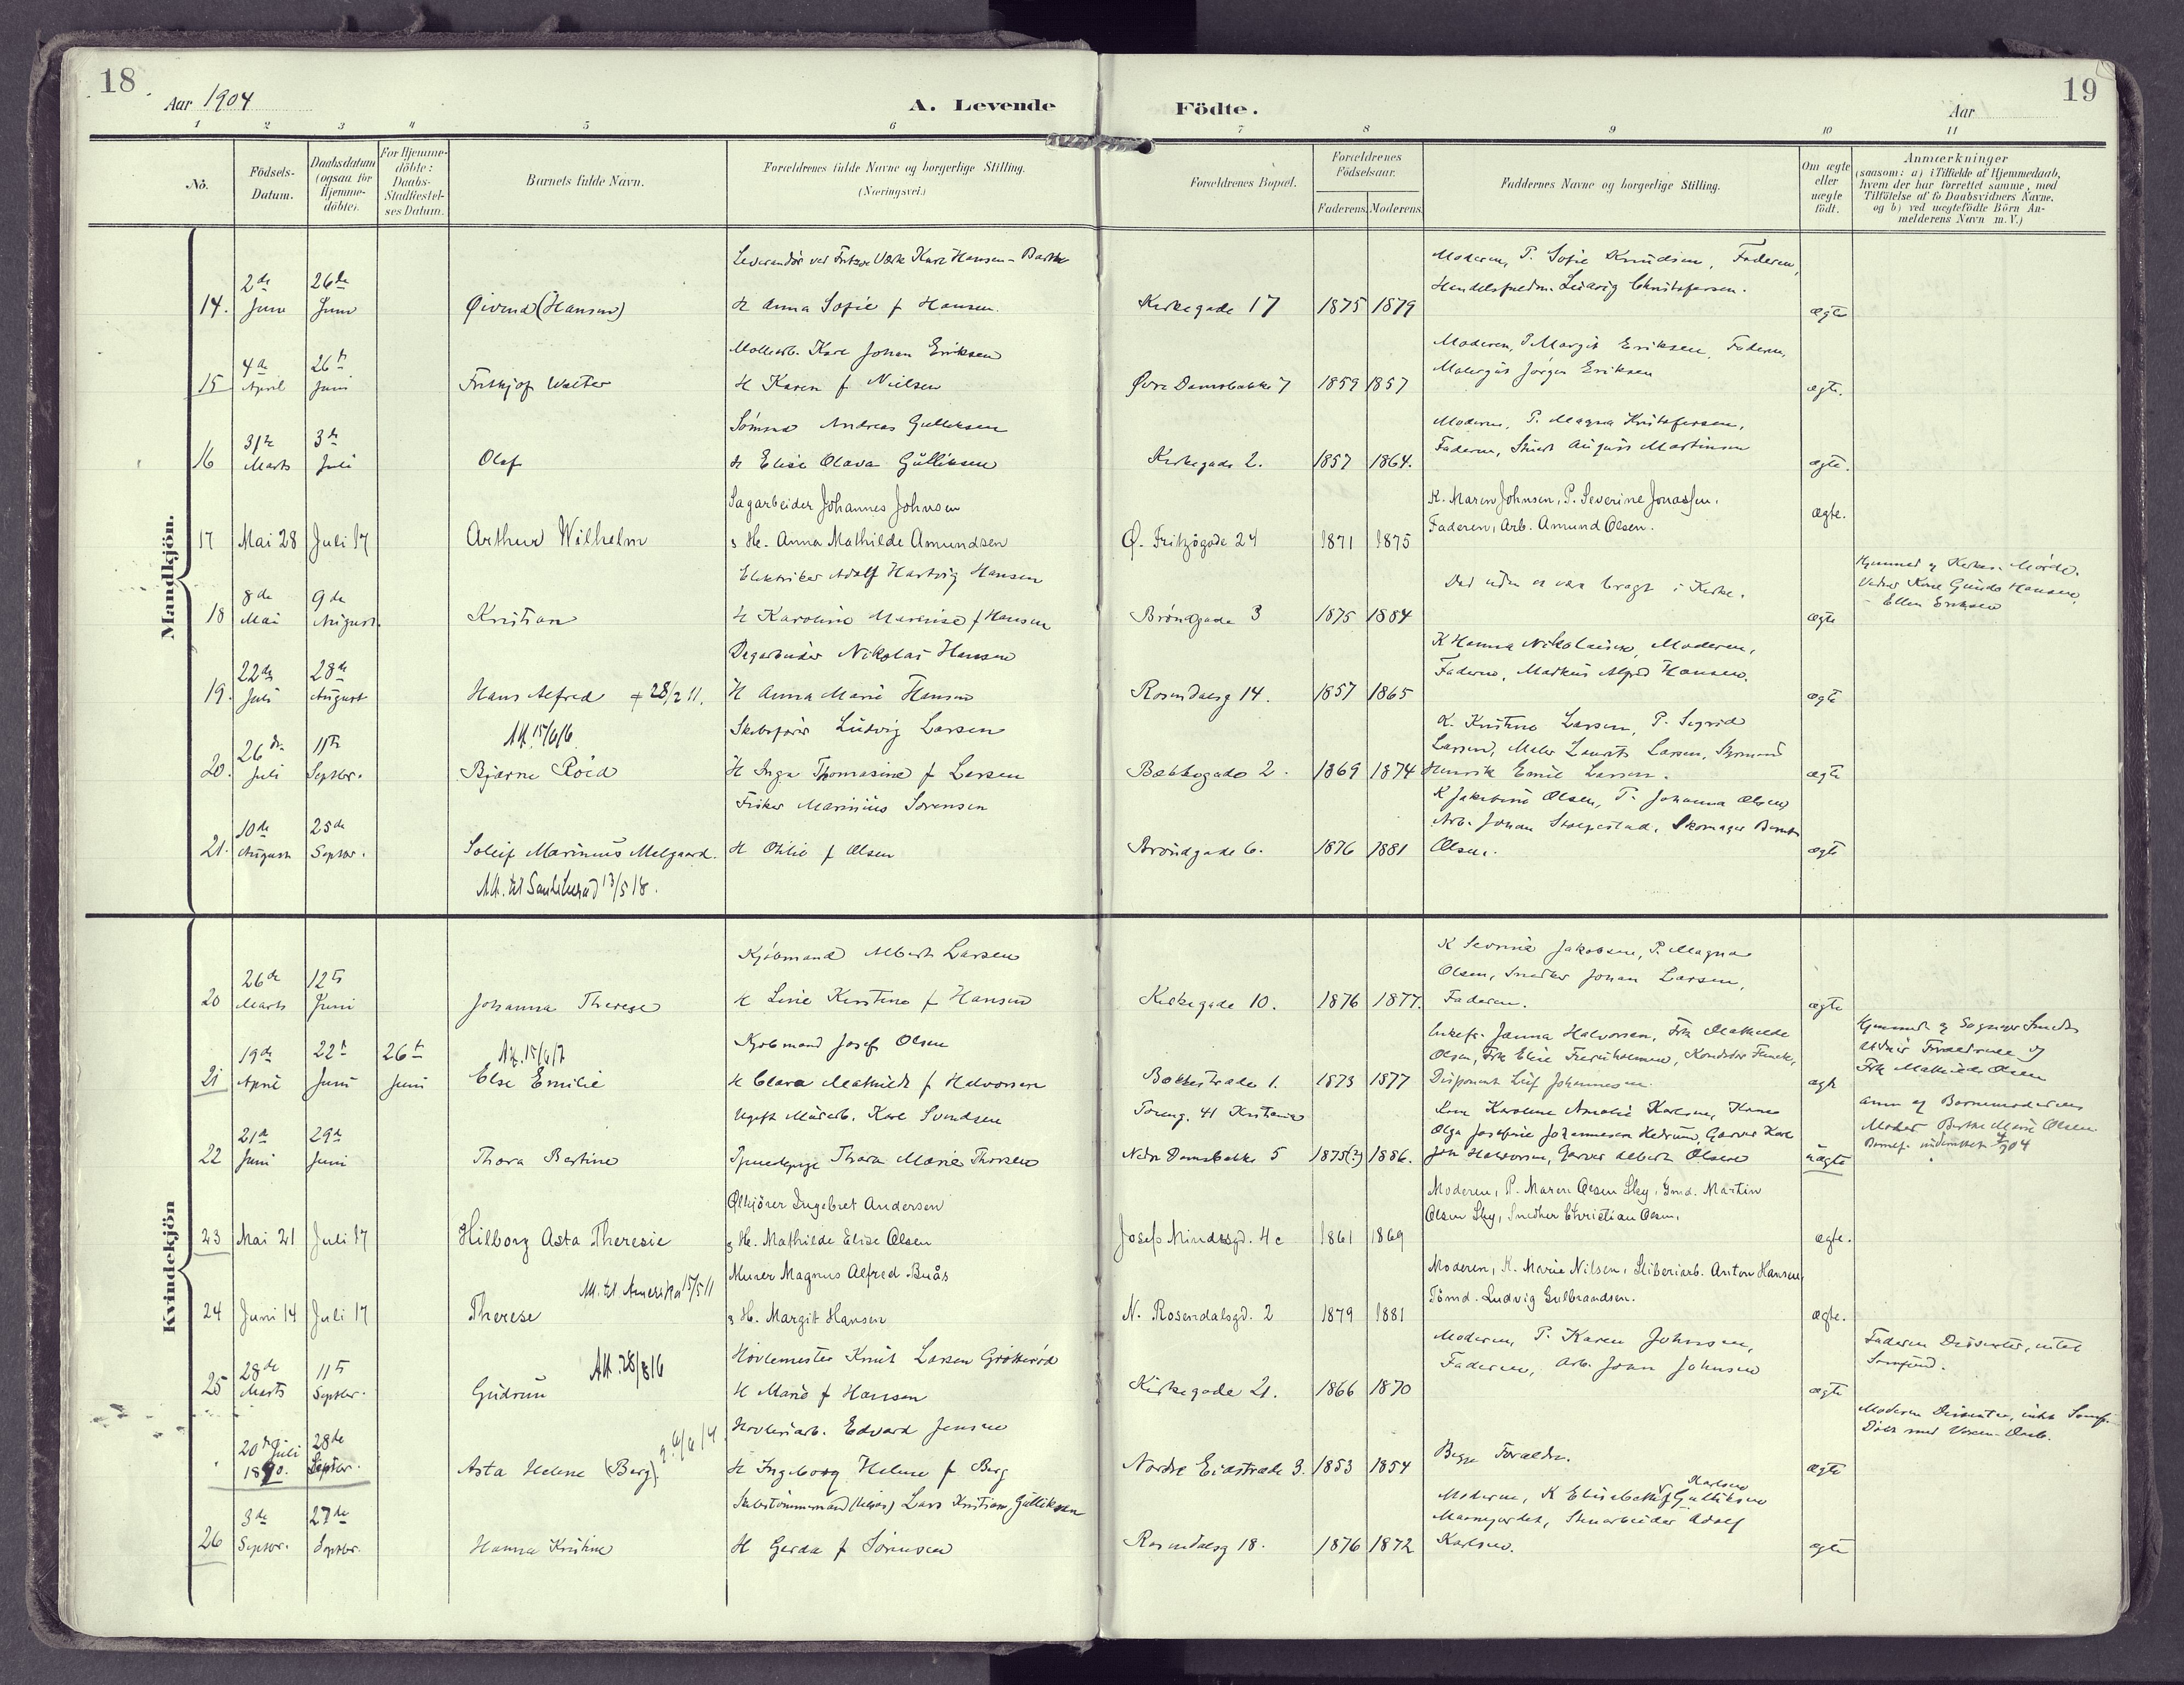 18
Aar 1904
A. Levende
Födte.
Aar
19
1 2 3 4 5 6 7 8 9 10 11
No.
Födsels-
Datum.
Daabsdatum
(ogsaa for
Hjemme-
döbte).
For Hjemme-
döbte:
Daabs-
Stadfæstel-
ses Datum.
Barnets fulde Navn.
Forældrenes fulde Navne og borgerlige Stilling.
(Næringsvei.)
Forældrenes Bopæl.
Forældrenes
Födselsaar.
Faderens. Moderens.
Faddernes Navne og borgerlige Stilling.
Om ægte
eller
uægte
født.
Anmærkninger
(saasom: a) i Tilfælde af Hjemmedaab,
hvem der har forrettet samme, med
Tilföielse af to Daabsvidners Navne,
og b) ved uægtefödte Börn An-
melderens Navn m. V.)
Mandkjön.
14. 2de Juni 26de Juni Øivind (Hansen)
Karl Hansen-
H Anna Sofie f Hansen.
Kirkegade 17 1875 1879
Moderen, P. Sofie Knudsen, Faderen,
Ludvig Christofersen.
ægte
15 4de April 26de Juni Frithjof Walter
Karl Johan Eriksen
H Karen f Nielsen
Øvre Damsbakke 7 1859 1857
Moderen, P Margit Eriksen, Faderen,
Jørgen Eriksen
ægte.
16 31te Marts 3de Juli Olaf
Sømand Andreas Gulliksen
H Elise Olava Gulliksen
Kirkegade 2. 1857 1864.
Moderen, P. Magna Kristofersen,
Faderen, August Martinsen
ægte.
17 Mai 28 Juli 17 Arthur Wilhelm
Sagarbeider Johannes Johnsen
& H. Anna Mathilde Amundsen
Ø. Fritzøgade 24 1871 1875
K. Maren Johnsen, P. Severine Jonassen,
Faderen, Arb. Amund Olsen.
ægte.
18 8de Mai 9de August Kristian
Elektriker Adolf Hartvig Hansen
H Karoline f Hansen
Brøndgade 3 1875 1884
bragt i Kirke.
ægte
Ellen Eriksen
19. 22de Juli 28de August Hans Alfred + 28/2 11.
Nikolai Hansen
H Anna Marie Hansen
Rosendalsg 14. 1857 1865
K Hanna Nikolaisen, Moderen,
Faderen, Markus Alfred Hansen.
ægte
20. 26de Juli 11te Septbr. Bjarne Röed
Att. 15/6/6
Skibsfører Ludvig Larsen
H Inga Thomasine f Larsen
Bækkegade 2. 1869 1874
K. Kristine Larsen, P. Sigrid
Larsen, Maler Laurits Larsen, Styrmand
Henrik Emil Larsen.
ægte
21. 10de August 25de Septbr. Solleif Marinius Melgaard.
Att. til Sauherad 13/5 18.
Fisker Marinius Sørensen
H Othilie f Olsen
Brøndgade 6. 1876 1881
K Jakobine Olsen, P. Johanna Olsen
Arb. Johan Stolpestad, Skomager
Olsen.
ægte
Kvindekjön
20 26de Marts 12te Juni Johanna Therese
Kjøbmand Albert Larsen
H Line Kirstine f Hansen
Kirkegade 10. 1876 1877.
K Severine Jakobsen, P. Magna
Olsen, Snedker Johan Larsen,
Faderen.
ægte
21 19de April 22de Juni 26de Juni Else Emilie
Att. 15/4/7
Kjøbmand Josef Olsen
H Clara Mathilde f Halvorsen
Bækkestræde 1. 1873 1877
Enkefr. Janna Halvorsen, Frk Mathilde
Olsen, Frk Elise
Disponent Leif Johannesen
ægte
Frk Mathilde Olsen
22 21de Juni 29de Juni Thora Bertine
Ugift Murarb. Karl Svendsen
Tjenestepige Thora Marie Thorsen
Torvg. 41 Kristiania
Nedre Damsbakke 5 1875(?) 1886.
Kone Karoline Amalie Karlsen, Kone
Olga Josefine Johannesen Hedrum, Garver Karl
Halvorsen, Garver Albert Olsen
uægte
Anm af Barnemoderens
Moder Berthe Marie Olsen.
23 Mai 21 Juli 17 Hilborg Asta Theresie
Ølkjører Ingebret Andersen
& H. Mathilde Elise Olsen
Josefs Mindesgd. 4c 1861 1869
Moderen, P. Maren Olsen Sky, Gmd. Martin
Olsen Sky, Snedker Christian Olsen.
ægte.
24 Juni 14 Juli 17 Therese
Att. til Amerika 15/5 11
Murer Magnus Alfred Buås
& H. Margit Hansen
N. Rosendalsgd. 2 1879 1881
Moderen, K. Marie Nilsen, Sliberiarb. Anton Hansen,
Tømd. Ludvig Gulbrandsen.
ægte.
25 28de Marts 11te Septbr. Gudrun
Att. 28/8 16
Høvlemester Knut Larsen Grøtterød
H Marie f Hansen
Kirkegade 21. 1866 1870
Moderen, P. Karen Johnsen,
Faderen, Arb. John Johnsen
ægte
Faderen Dissenter, intet
Samfund.
20de Juli 1890. 28de Septbr. Asta Helene (Berg)
Høvleriarb. Edvard Jensen
H Ingeborg Helene f Berg
Nordre Eidstræde 3. 1853 1854
Begge Forældre.
ægte
Moderen Dissenter, intet Samf.
26 3de Septbr. 27de Septbr. Hanna Kristine
Skibstømmermand Lars Kristian Gulliksen
H Gerda f Sörensen
Rosendalsg 18. 1876 1872
Moderen, K Elisabeth Gulliksen
Karlsen
Stenarbeider Adolf
Karlsen.
ægte